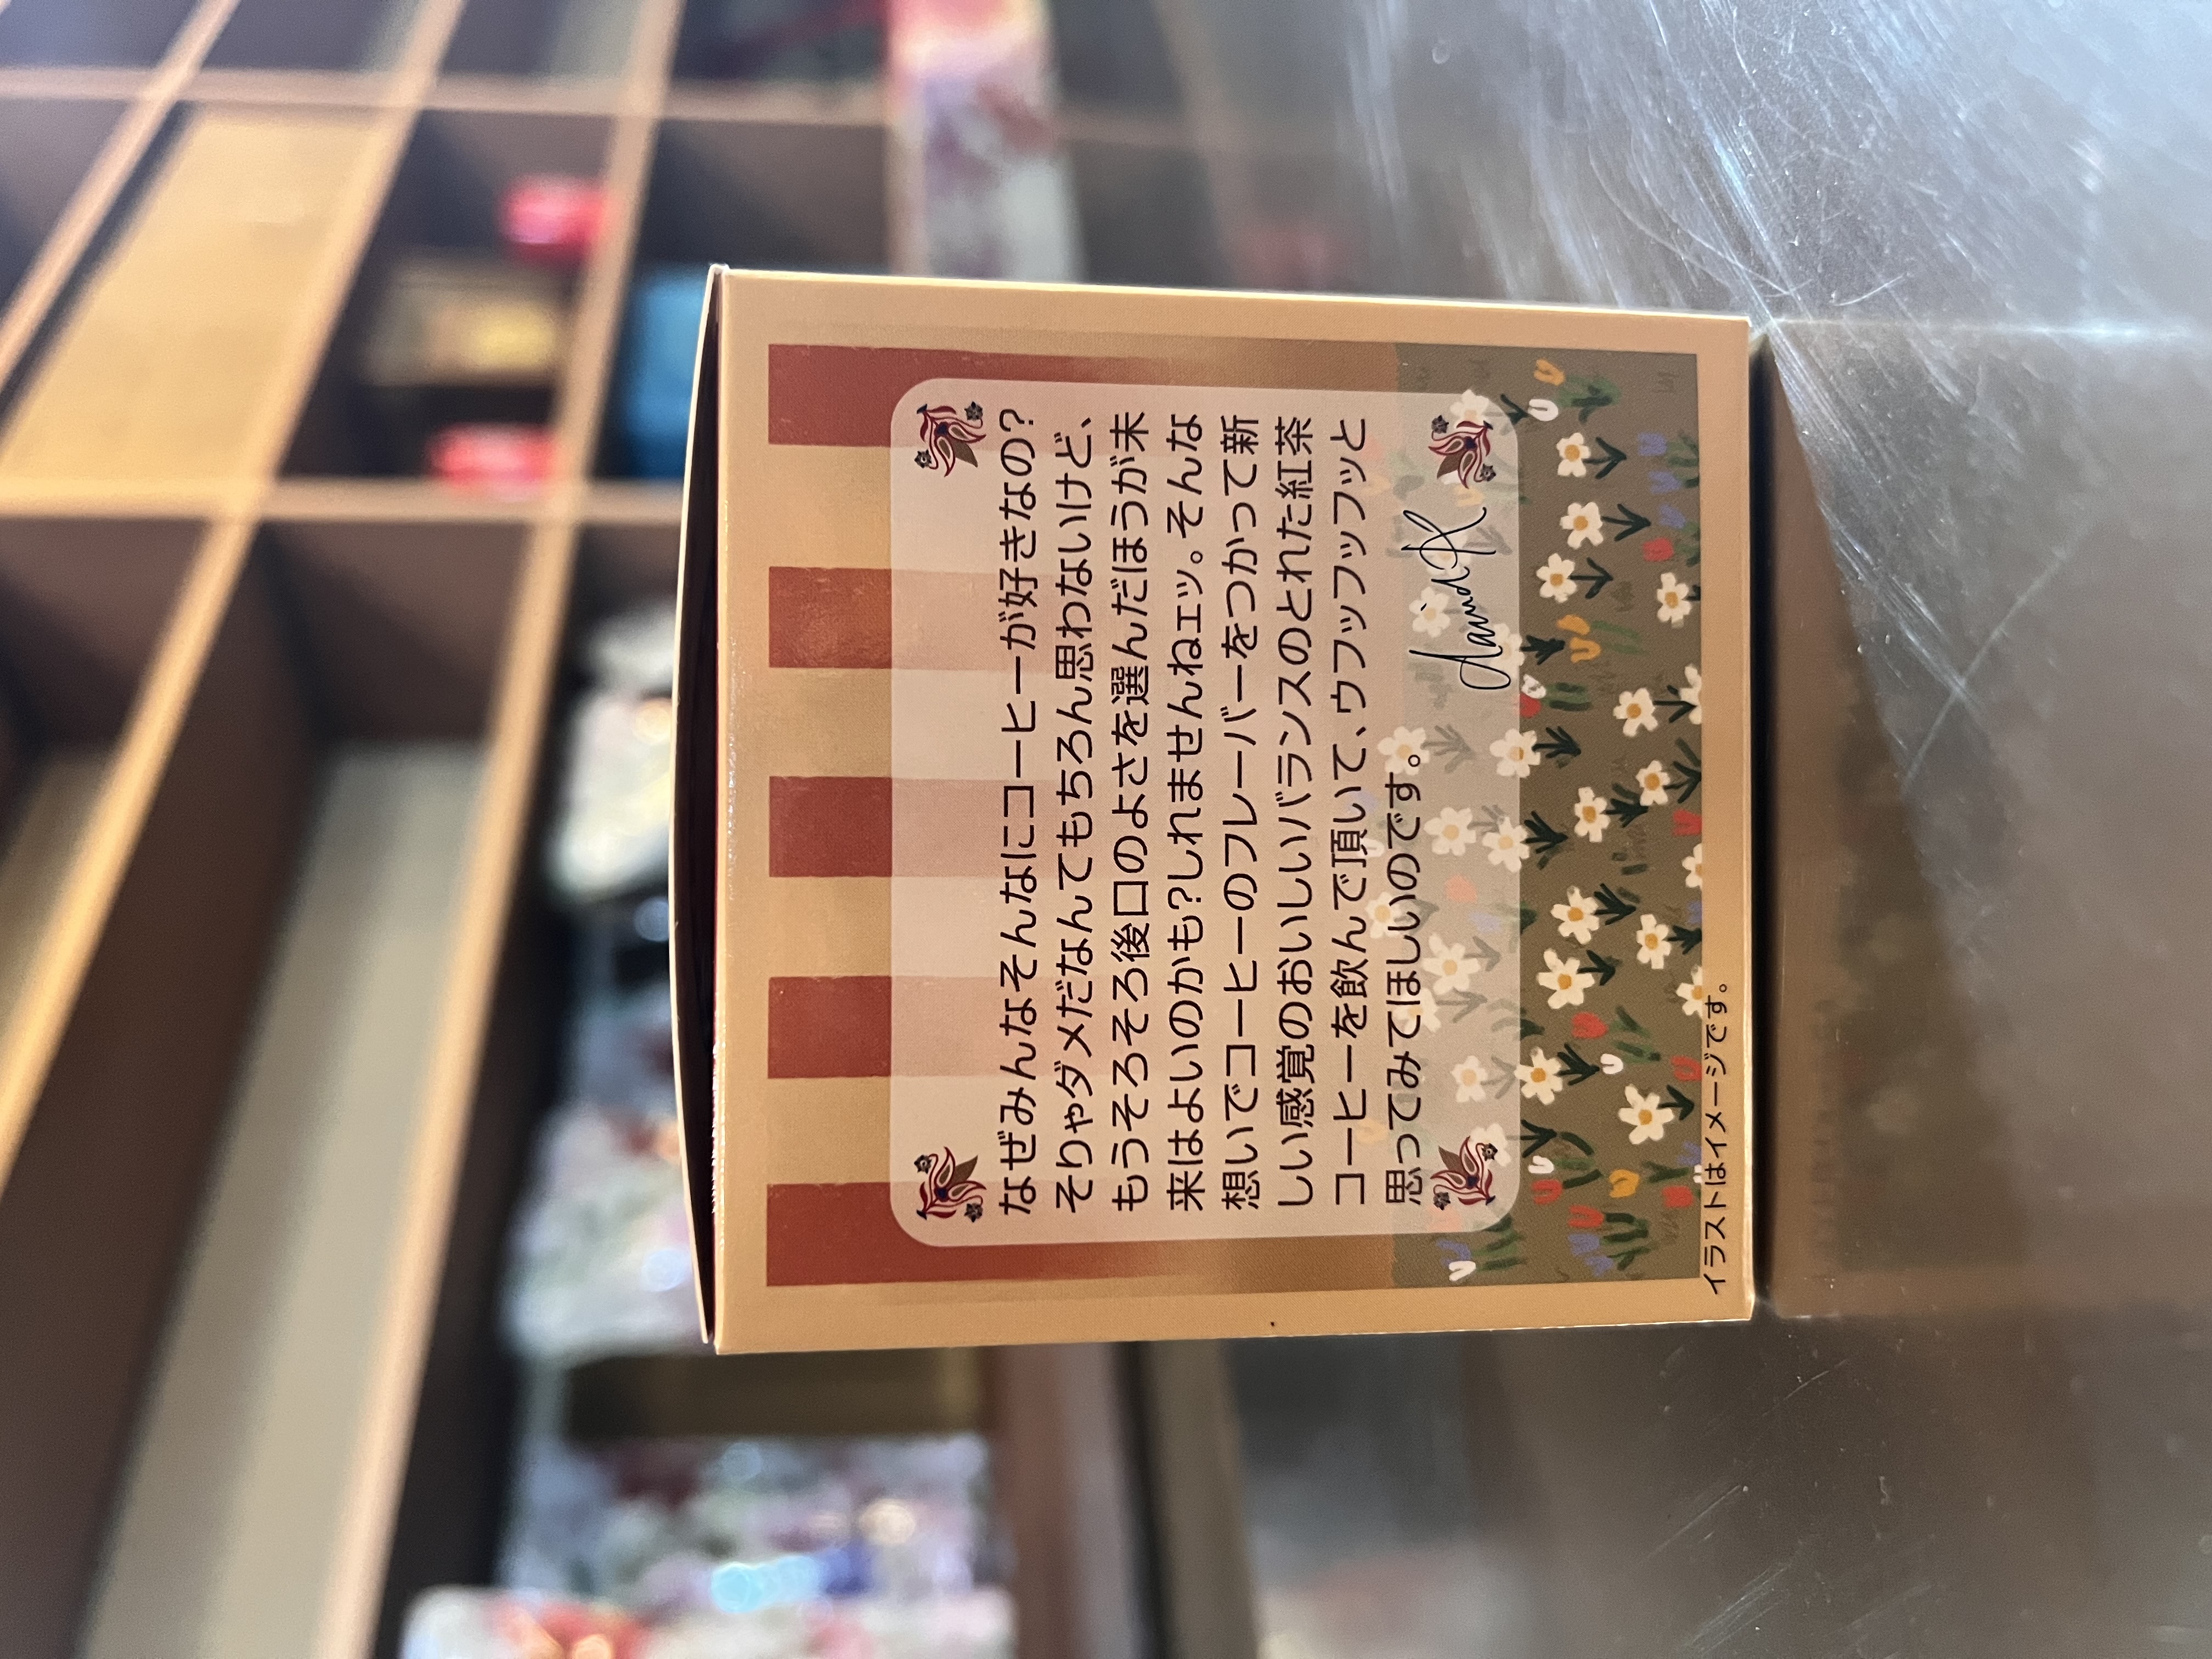 なぜみんなそんなにコーヒーが好きなの?
そりゃダメだなんてもちろん思わないけど、
もうそろそろ後口のよさを選んだほうが未
来はよいのかも?しれませんねェッ。そんな
想いでコーヒーのフレーバーをつかって新
しい感覚のおいしいバランスのとれた紅茶
コーヒーを飲んで頂いて、ウフッフッフッと
思ってみてほしいのです。
David K
イラストはイメージです。